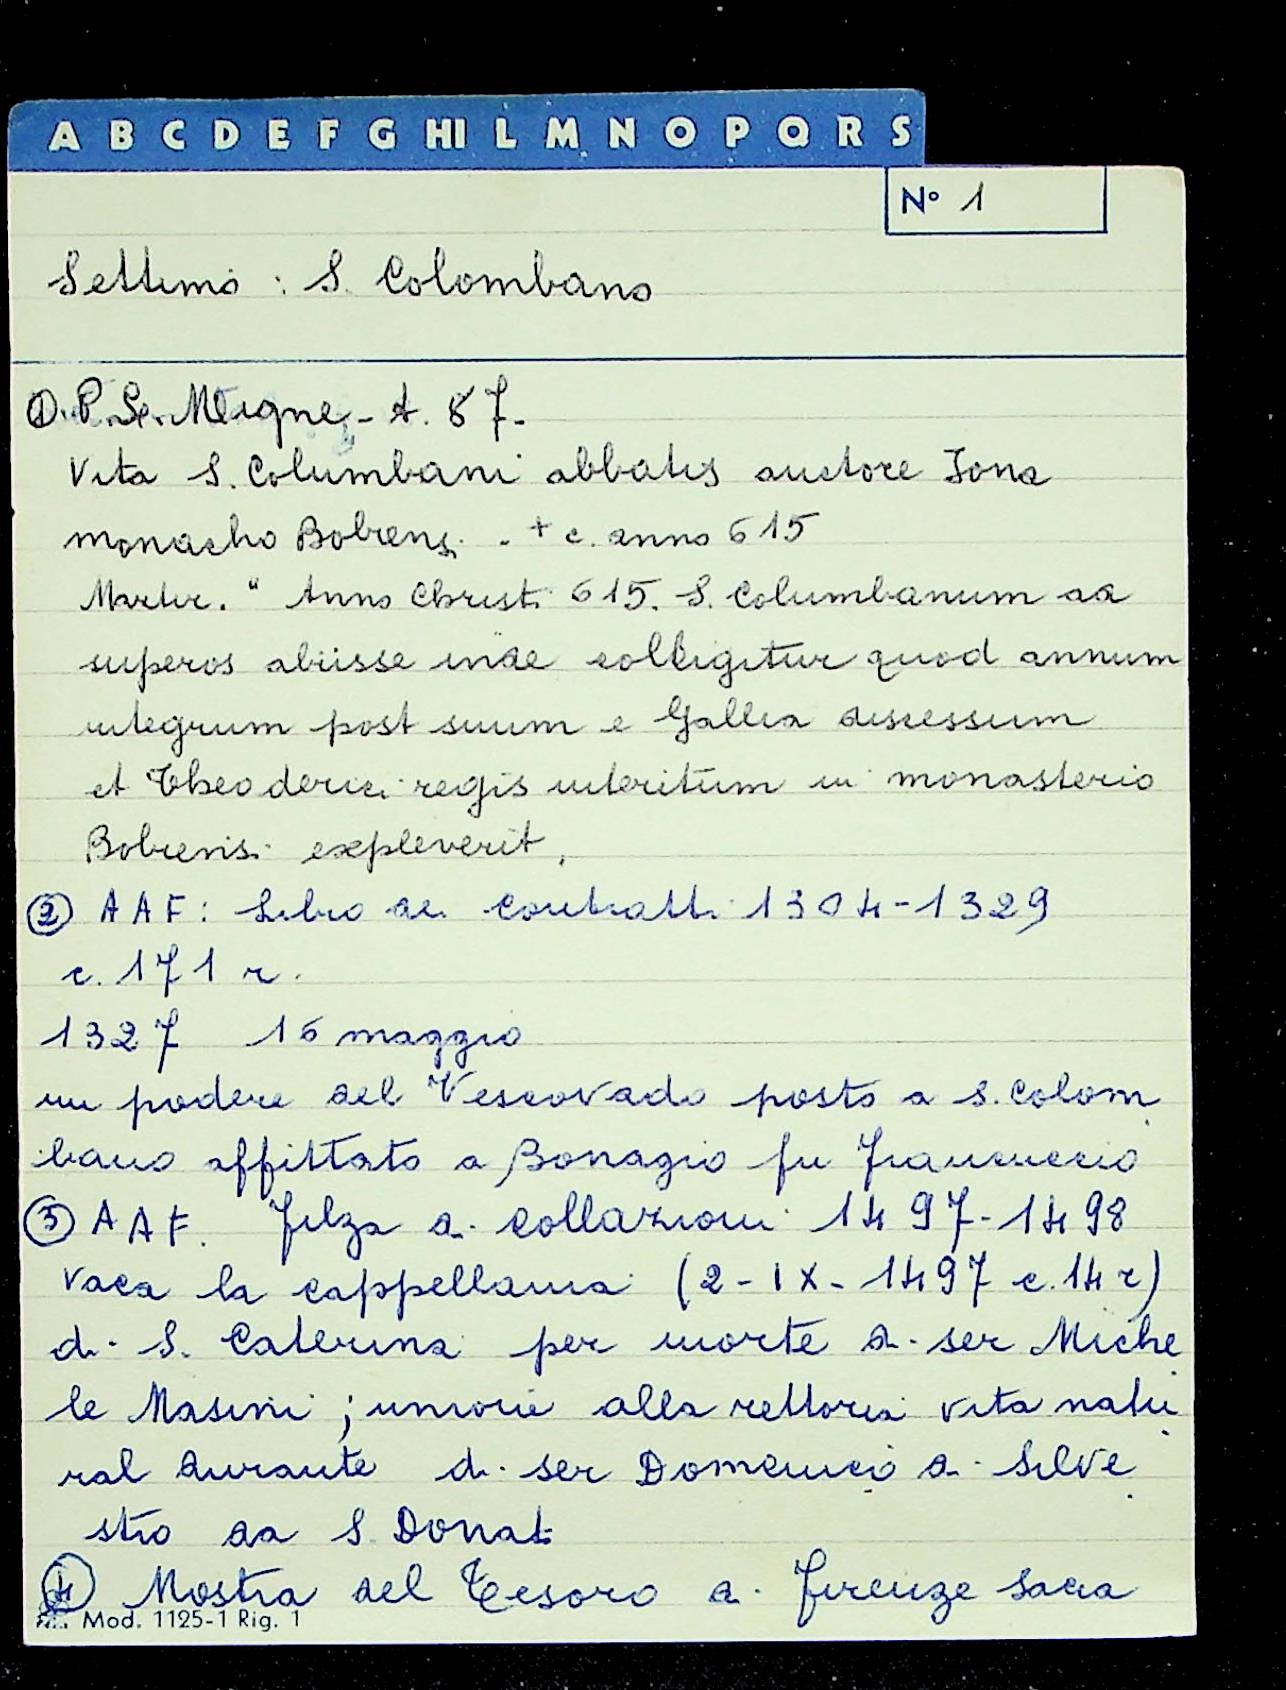 A B C D E F G HI L M N O P Q R S
N° 1
Settimo : S. Colombano
1). P. L. Migne - t. 87 -
Vita S. Columbani abbatis auctore Jona
monacho Bobiensi - + c. anno 615
Martir. " Anno Christi 615. S. Columbanum ad
superos abiisse inde colligitur quod annum
integrum post suum e Gallia discessum
et Theoderici regis interitum in monasterio
Bobiensi expleverit,
2) AAF: Libro dei contratti 1304-1329
c. 171 r.
1327 16 maggio
un podere del Vescovado posto a S. Colom
bano affittato a Bonagio fu Francuccio
3) AAF. Filza di collazioni 1497-1498
Vaca la cappellania (2-IX-1497 c. 14 r)
di S. Caterina per morte di ser Miche
le Masini ; unione alla rettoria vita natu
ral durante di ser Domenico di Silve
stro da S. Donat
4) Mostra del Tesoro di Firenze Sacra
Mod. 1125-1 Rig. 1